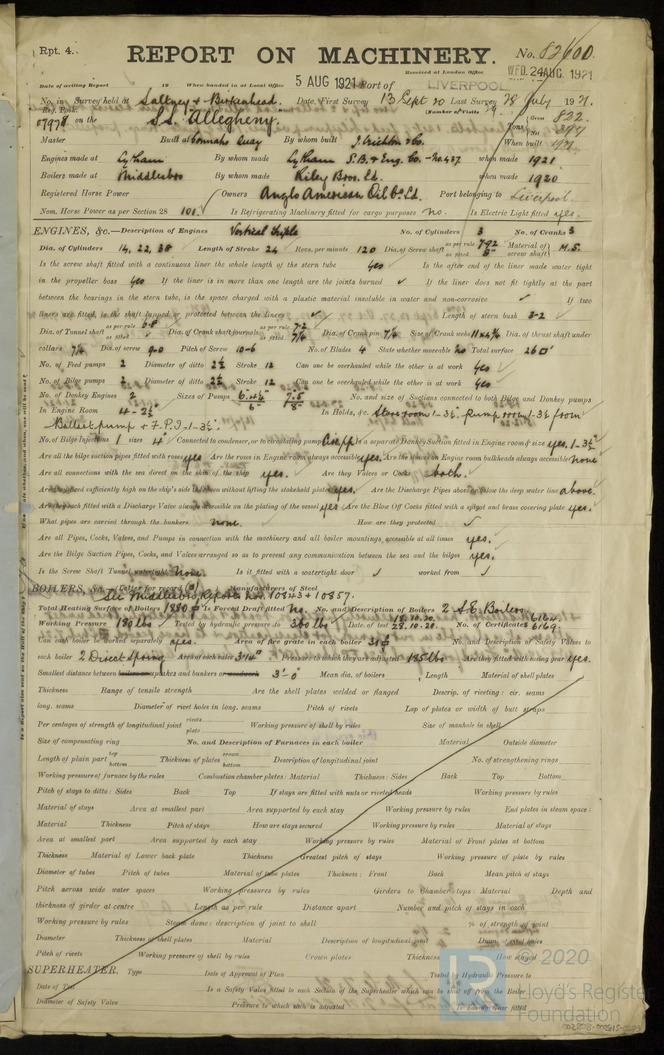 Rpt. 4.
REPORT ON MACHINERY. No. 82600
5 AUG 1921 Port of LIVERPOOL Received at London Office WED. 24 AUG. 1921
Date of writing Report 19 When handed in at Local Office
No. in Survey held at Saltney & Birkenhead. Date, First Survey 13 Sept 20 Last Survey 28 July 1921.
Reg. Book. (Number of Visits
on the S.S. Allegheny. Gross 832
Master Built at Connahs Quay By whom built J. Crichton & Co. When built 1921
Engines made at Lytham By whom made Lytham S.B. & Eng. Co. - No. 437 when made 1921
Boilers made at Middlesbro By whom made Riley Bros. Ld. when made 1920
Registered Horse Power Owners Anglo American Oil Co. Ld. Port belonging to Liverpool.
Nom. Horse Power as per Section 28 101. Is Refrigerating Machinery fitted for cargo purposes no. Is Electric Light fitted yes.
ENGINES, &c.—Description of Engines Vertical Triple No. of Cylinders 3 No. of Cranks 3
Dia. of Cylinders 14, 22, 38 Length of Stroke 24 Revs. per minute 120 Dia. of Screw shaft as per rule 7.92 as fitted 8" Material of screw shaft M.S.
Is the screw shaft fitted with a continuous liner the whole length of the stern tube Yes Is the after end of the liner made water tight
in the propeller boss Yes If the liner is in more than one length are the joints burned If the liner does not fit tightly at the part
between the bearings in the stern tube, is the space charged with a plastic material insoluble in water and non-corrosive If two
liners are fitted, is the shaft lapped or protected between the liners Length of stern bush 3-2
Dia. of Tunnel shaft as per rule 6.8 as fitted Dia. of Crank shaft journals as per rule 7.2 as fitted 7 1/4 Dia. of Crank pin 7 1/4 Size of Crank webs Dia. of thrust shaft under
collars 7 1/4 Dia. of screw 9-0 Pitch of Screw 10-6 No. of Blades 4 State whether moveable no Total surface 26
No. of Feed pumps 2 Diameter of ditto 2 1/2 Stroke 12 Can one be overhauled while the other is at work Yes
No. of Bilge pumps 2 Diameter of ditto 2 1/2 Stroke 12 Can one be overhauled while the other is at work Yes
No. of Donkey Engines 2 Sizes of Pumps No. and size of Suctions connected to both Bilge and Donkey pumps
In Engine Room 4 - 2 1/2" In Holds, &c. Store room 1-3 1/2". Pump room 1-3 1/2 from
Ballast pump & F.P.T-1-3 1/2".
No. of Bilge Injections 1 sizes 4" Connected to condenser, or to circulating pump Is a separate Donkey Suction fitted in Engine room & size yes. 1-3 1/2"
Are all the bilge suction pipes fitted with roses yes Are the roses in Engine room always accessible yes. Are the sluices on Engine room bulkheads always accessible none
Are all connections with the sea direct on the skin of the ship yes. Are they Valves or Cocks both.
Are they fixed sufficiently high on the ship's side to be seen without lifting the stokehold plates yes. Are the Discharge Pipes above or below the deep water line above.
Are they each fitted with a Discharge Valve always accessible on the plating of the vessel yes Are the Blow Off Cocks fitted with a spigot and brass covering plate yes.
What pipes are carried through the bunkers none. How are they protected
Are all Pipes, Cocks, Valves, and Pumps in connection with the machinery and all boiler mountings, accessible at all times yes.
Are the Bilge Suction Pipes, Cocks, and Valves arranged so as to prevent any communication between the sea and the bilges yes.
Is the Screw Shaft Tunnel watertight None. Is it fitted with a watertight door worked from
BOILERS, &c.—(Letter for record (S)) Manufacturers of Steel
See Middlesbro Reports Nos. 10843 & 10857.
Total Heating Surface of Boilers 1880 Is Forced Draft fitted No. No. and Description of Boilers 2 S.E. Boilers
Working Pressure 180 lbs Tested by hydraulic pressure to 360 lbs Date of test 18.10.20. 28.10.20. No. of Certificate 6164. 6169.
Can each boiler be worked separately yes. Area of fire grate in each boiler 31 No. and Description of Safety Valves to
each boiler 2 Direct Spring Area of each valve 3.14" Pressure to which they are adjusted 185 lbs Are they fitted with easing gear yes.
Smallest distance between boilers or uptakes and bunkers or woodwork 3'-0" Mean dia. of boilers Length Material of shell plates
Thickness Range of tensile strength Are the shell plates welded or flanged Descrip. of riveting: cir. seams
long. seams Diameter of rivet holes in long. seams Pitch of rivets Lap of plates or width of butt straps
Per centages of strength of longitudinal joint rivets plate Working pressure of shell by rules Size of manhole in shell
Size of compensating ring No. and Description of Furnaces in each boiler Material Outside diameter
Length of plain part top bottom Thickness of plates crown bottom Description of longitudinal joint No. of strengthening rings
Working pressure of furnace by the rules Combustion chamber plates: Material Thickness: Sides Back Top Bottom
Pitch of stays to ditto: Sides Back Top If stays are fitted with nuts or riveted heads Working pressure by rules
Material of stays Area at smallest part Area supported by each stay Working pressure by rules End plates in steam space:
Material Thickness Pitch of stays How are stays secured Working pressure by rules Material of stays
Area at smallest part Area supported by each stay Working pressure by rules Material of Front plates at bottom
Thickness Material of Lower back plate Thickness Greatest pitch of stays Working pressure of plate by rules
Diameter of tubes Pitch of tubes Material of tube plates Thickness: Front Back Mean pitch of stays
Pitch across wide water spaces Working pressures by rules Girders to Chamber tops: Material Depth and
thickness of girder at centre Length as per rule Distance apart Number and pitch of stays in each
Working pressure by rules Steam dome: description of joint to shell % of strength of joint
Diameter Thickness of shell plates Material Description of longitudinal joint Diam. of rivet holes
Pitch of rivets Working pressure of shell by rules Crown plates Thickness How stayed
SUPERHEATER. Type Date of Approval of Plan Tested by Hydraulic Pressure to
Date of Test Is a Safety Valve fitted to each Section of the Superheater which can be shut off from the Boiler
Diameter of Safety Valve Pressure to which each is adjusted Is Easing Gear fitted
© 2020
LR
Lloyd's Register
Foundation